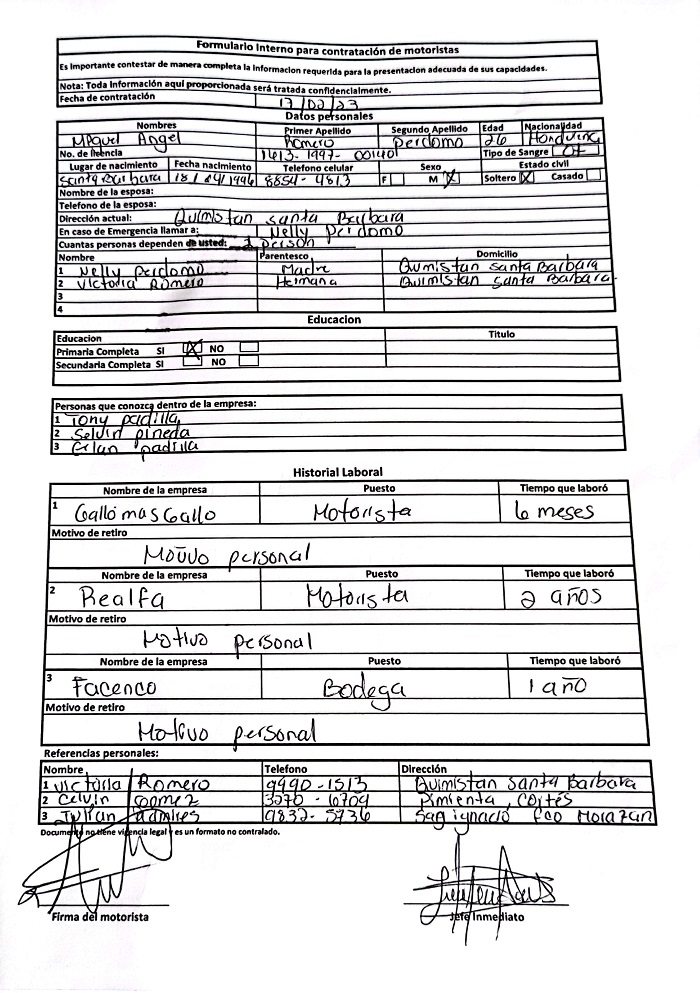 Formulario Interno para contratación de motoristas
Es importante contestar de manera completa la informacion requerida para la presentacion adecuada de sus capacidades.
Nota: Toda información aqui proporcionada será tratada confidencialmente.
Fecha de contratación 17/02/23
Datos personales
Nombres Primer Apellido Segundo Apellido Edad Nacionalidad
Miguel Angel Romero Perdomo 26 Hondura
No. de licencia 1613-1997-00140 Tipo de Sangre O+
Lugar de nacimiento Fecha nacimiento Telefono celular Sexo Estado civil
Santa Barbara 18/04/1996 8854-4813 F M X Soltero X Casado
Nombre de la esposa:
Telefono de la esposa:
Dirección actual: Quimistan santa Barbara
En caso de Emergencia llamar a: Nelly Perdomo
Cuantas personas dependen de usted: 1 person
Nombre Parentesco Domicilio
1 Nelly perdomo Madre Quimistan santa Barbara
2 Victoria Romero Hermana Quimistan santa Barbara
3
4
Educacion
Educacion Titulo
Primaria Completa SI X NO
Secundaria Completa SI NO
Personas que conozca dentro de la empresa:
1 Tony padilla
2 Selvin pineda
3 Erlan padilla
Historial Laboral
Nombre de la empresa Puesto Tiempo que laboró
1 Gallo mas Gallo Motorista 6 meses
Motivo de retiro
Motivo personal
Nombre de la empresa Puesto Tiempo que laboró
2 Realfa Motorista 2 años
Motivo de retiro
Motivo personal
Nombre de la empresa Puesto Tiempo que laboró
3 Facenco Bodega 1 año
Motivo de retiro
Motivo personal
Referencias personales:
Nombre Telefono Dirección
1 Victoria Romero 9990-1513 Quimistan Santa Barbara
2 Celvin gomez 3270-6709 Pimienta, Cortés
3 Julian 9832-5736 San ignacio Fco Morazan
Documento no tiene vigencia legal y es un formato no contralado.
Firma del motorista Jefe Inmediato